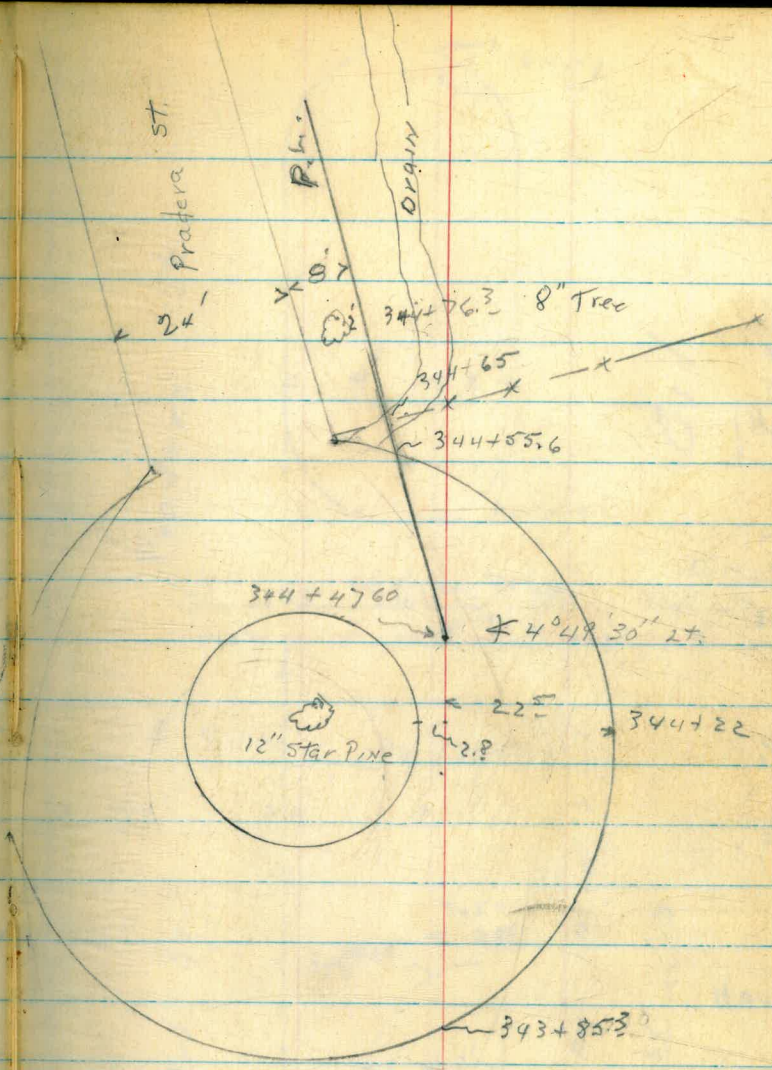 Pradera St.
P.L.
Drain
24'
8'
2'
344+76.3 8" Tree
344+65
344+55.6
344+4760
4°49'30" Lt.
22⁵
344+22
12" Star Pine
2.8
343+85.3